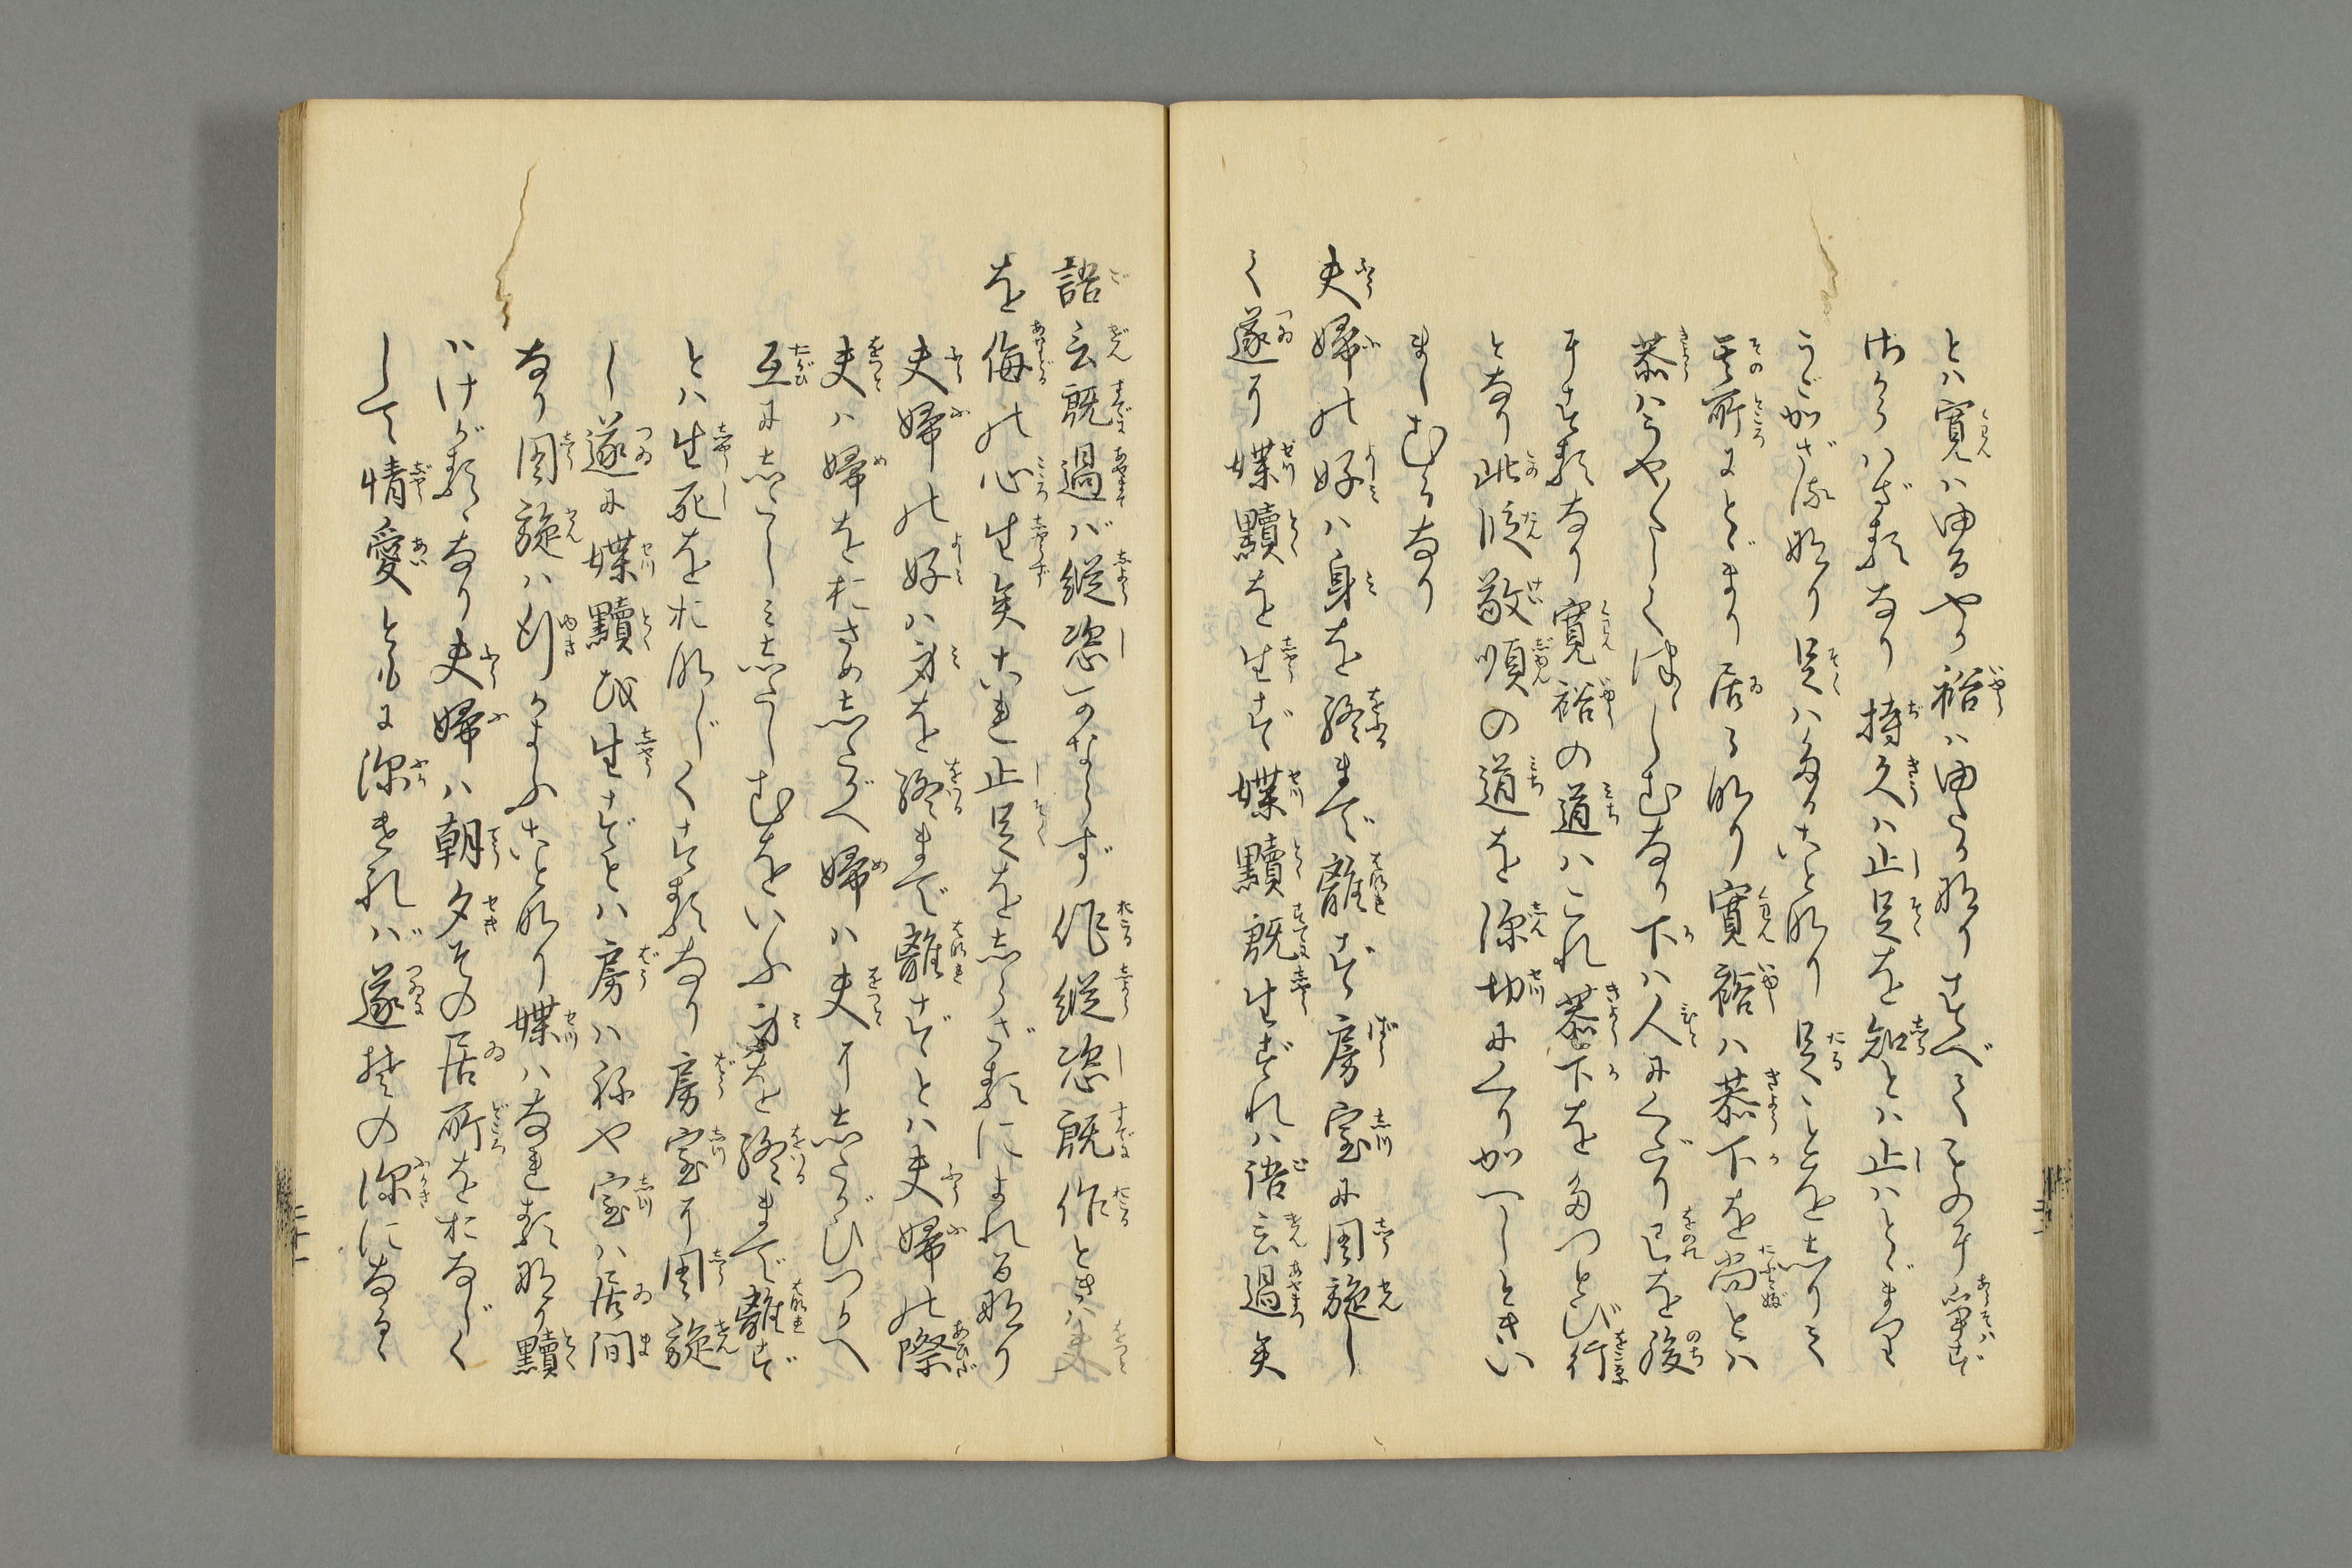 とハ寛ハゆるやか裕ハゆたか也すべてものに争ず
さからハざるなり持久ハ止足を知とハ止ハとゞまりて
うごかざる也足ハたることなり足ことをしりて
其所にとゞまり居る也寛裕ハ恭下を尚とハ
恭ハうや〳〵しくつゝしむなり下ハ人にくだり己を後
にするなり寛裕の道ハこれ恭下をたつとび行
となり此段敬順の道を深切にくりかへしときい
ましむるなり
夫婦の好ハ身を終まで離ず房室に周旋し
て遂に媟黷を生ず媟黷既生ずれハ語言過矣
語言既過バ縦恣かならず作縦恣既作ときハ夫
を侮の心生矣これ止足をしらざるによれる也
夫婦の好ハ身を終まで離ずとハ夫婦の際
夫ハ婦をおさめしたがへ婦ハ夫にしたがひつかへ
互にしたしみしたしむをいふ身を終まで離ず
とハ生死をおなじくするなり房室に周旋
し遂に媟黷を生ずとハ房ハねや室ハ居間
なり周旋ハ行かよふこと也媟ハなれる也黷
ハけがるゝなり夫婦ハ朝夕その居所をおなじく
して情愛ともに深けれバ遂其の深になるゝ